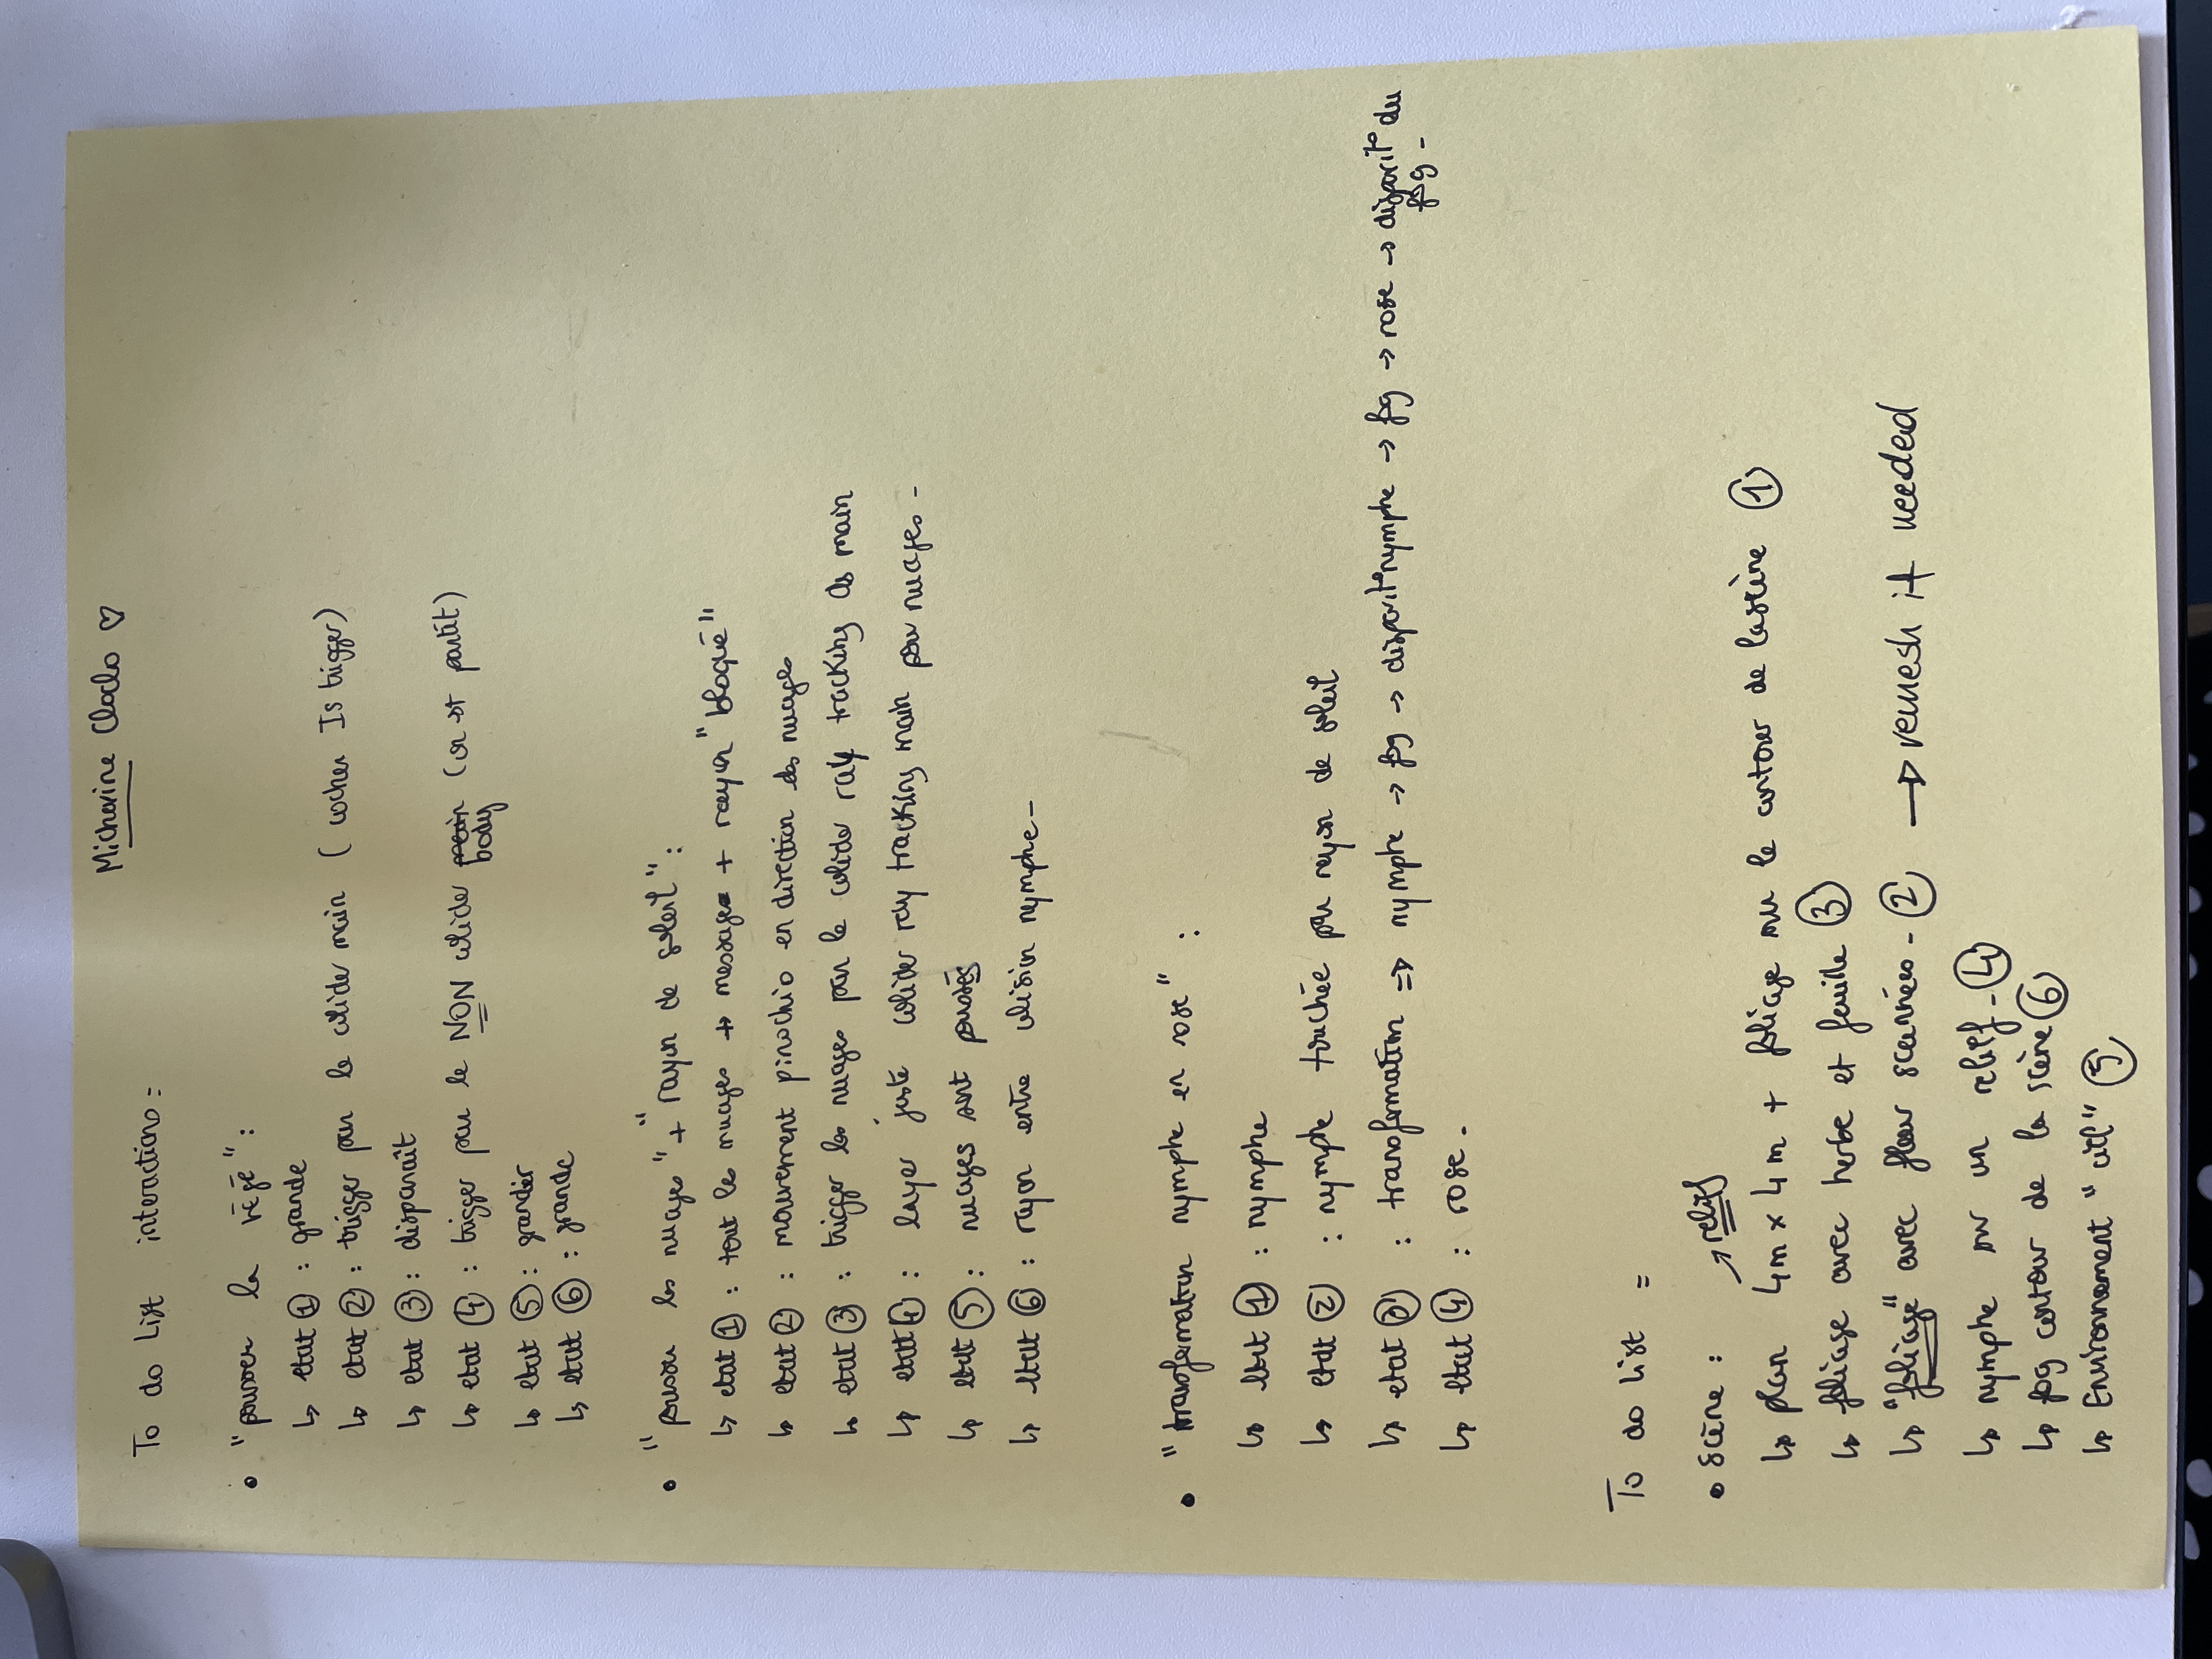 Micherine Cloclo ♡
To do List interactions =
• "pousser la végé" :
↳ etat ① : grande
↳ etat ② : trigger par le colider main ( cocher Is trigger)
↳ etat ③ : disparaît
↳ etat ④ : trigger par le NON colider main body (on st partit)
↳ etat ⑤ : grandir
↳ etat ⑥ : grande
• "pousser les nuages" + "rayon de soleil" :
↳ etat ① : tout les nuages → message + rayon "bloqué"
↳ etat ② : mouvement pinochio en direction des nuages
↳ etat ③ : trigger les nuages par le colider ray tracking ds main
↳ etat ④ : layer juste colider ray tracking main pour nuages -
↳ etat ⑤ : nuages sont poussés
↳ etat ⑥ : rayon entre colision nymphe -
• "transformation nymphe en rose" :
↳ etat ① : nymphe
↳ etat ② : nymphe touchée par rayon de soleil
↳ etat ③ : transformation => nymphe → fog → disparit° nymphe → fog → rose → disparit° du fog -
↳ etat ④ : rose -
To do List =
• Scène :
→ relief
↳ plan 4m x 4m + foliage sur le contour de la scène ①
↳ foliage avec herbe et feuille ③
↳ "foliage" avec fleur scannées - ② → remesh if needed
↳ nymphe sur un relief - ④
↳ fog contour de la scène ⑥
↳ Environnement "ciel" ⑤